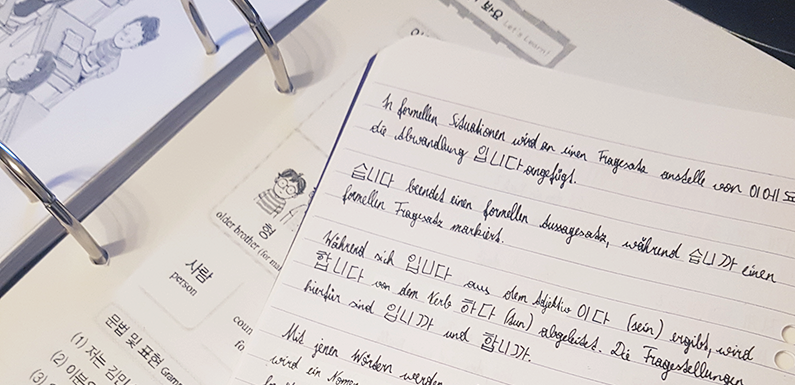 보아요 Let's Learn!
형
older brother (for ma
사람
person
coun
fo
문법 및 표현 Gramm
(1) 저는 김민
(2) 이분은
(3)
In formellen Situationen wird an einen Fragesatz anstelle von 이에요
die Abwandlung 입니다 angefügt.
습니다 beendet einen formellen Aussagesatz, während 습니까 einen
formellen Fragesatz markiert.
Während sich 입니다 aus dem Adjektiv 이다 (sein) ergibt, wird
합니다 von dem Verb 하다 (tun) abgeleitet. Die Fragestellungen
hierfür sind 입니까 und 합니까.
Mit jenen Wörtern werden
wird ein Nomen